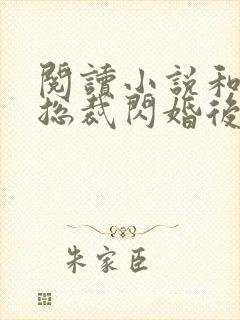 閱讀小說和
總裁閃婚後
朱家臣